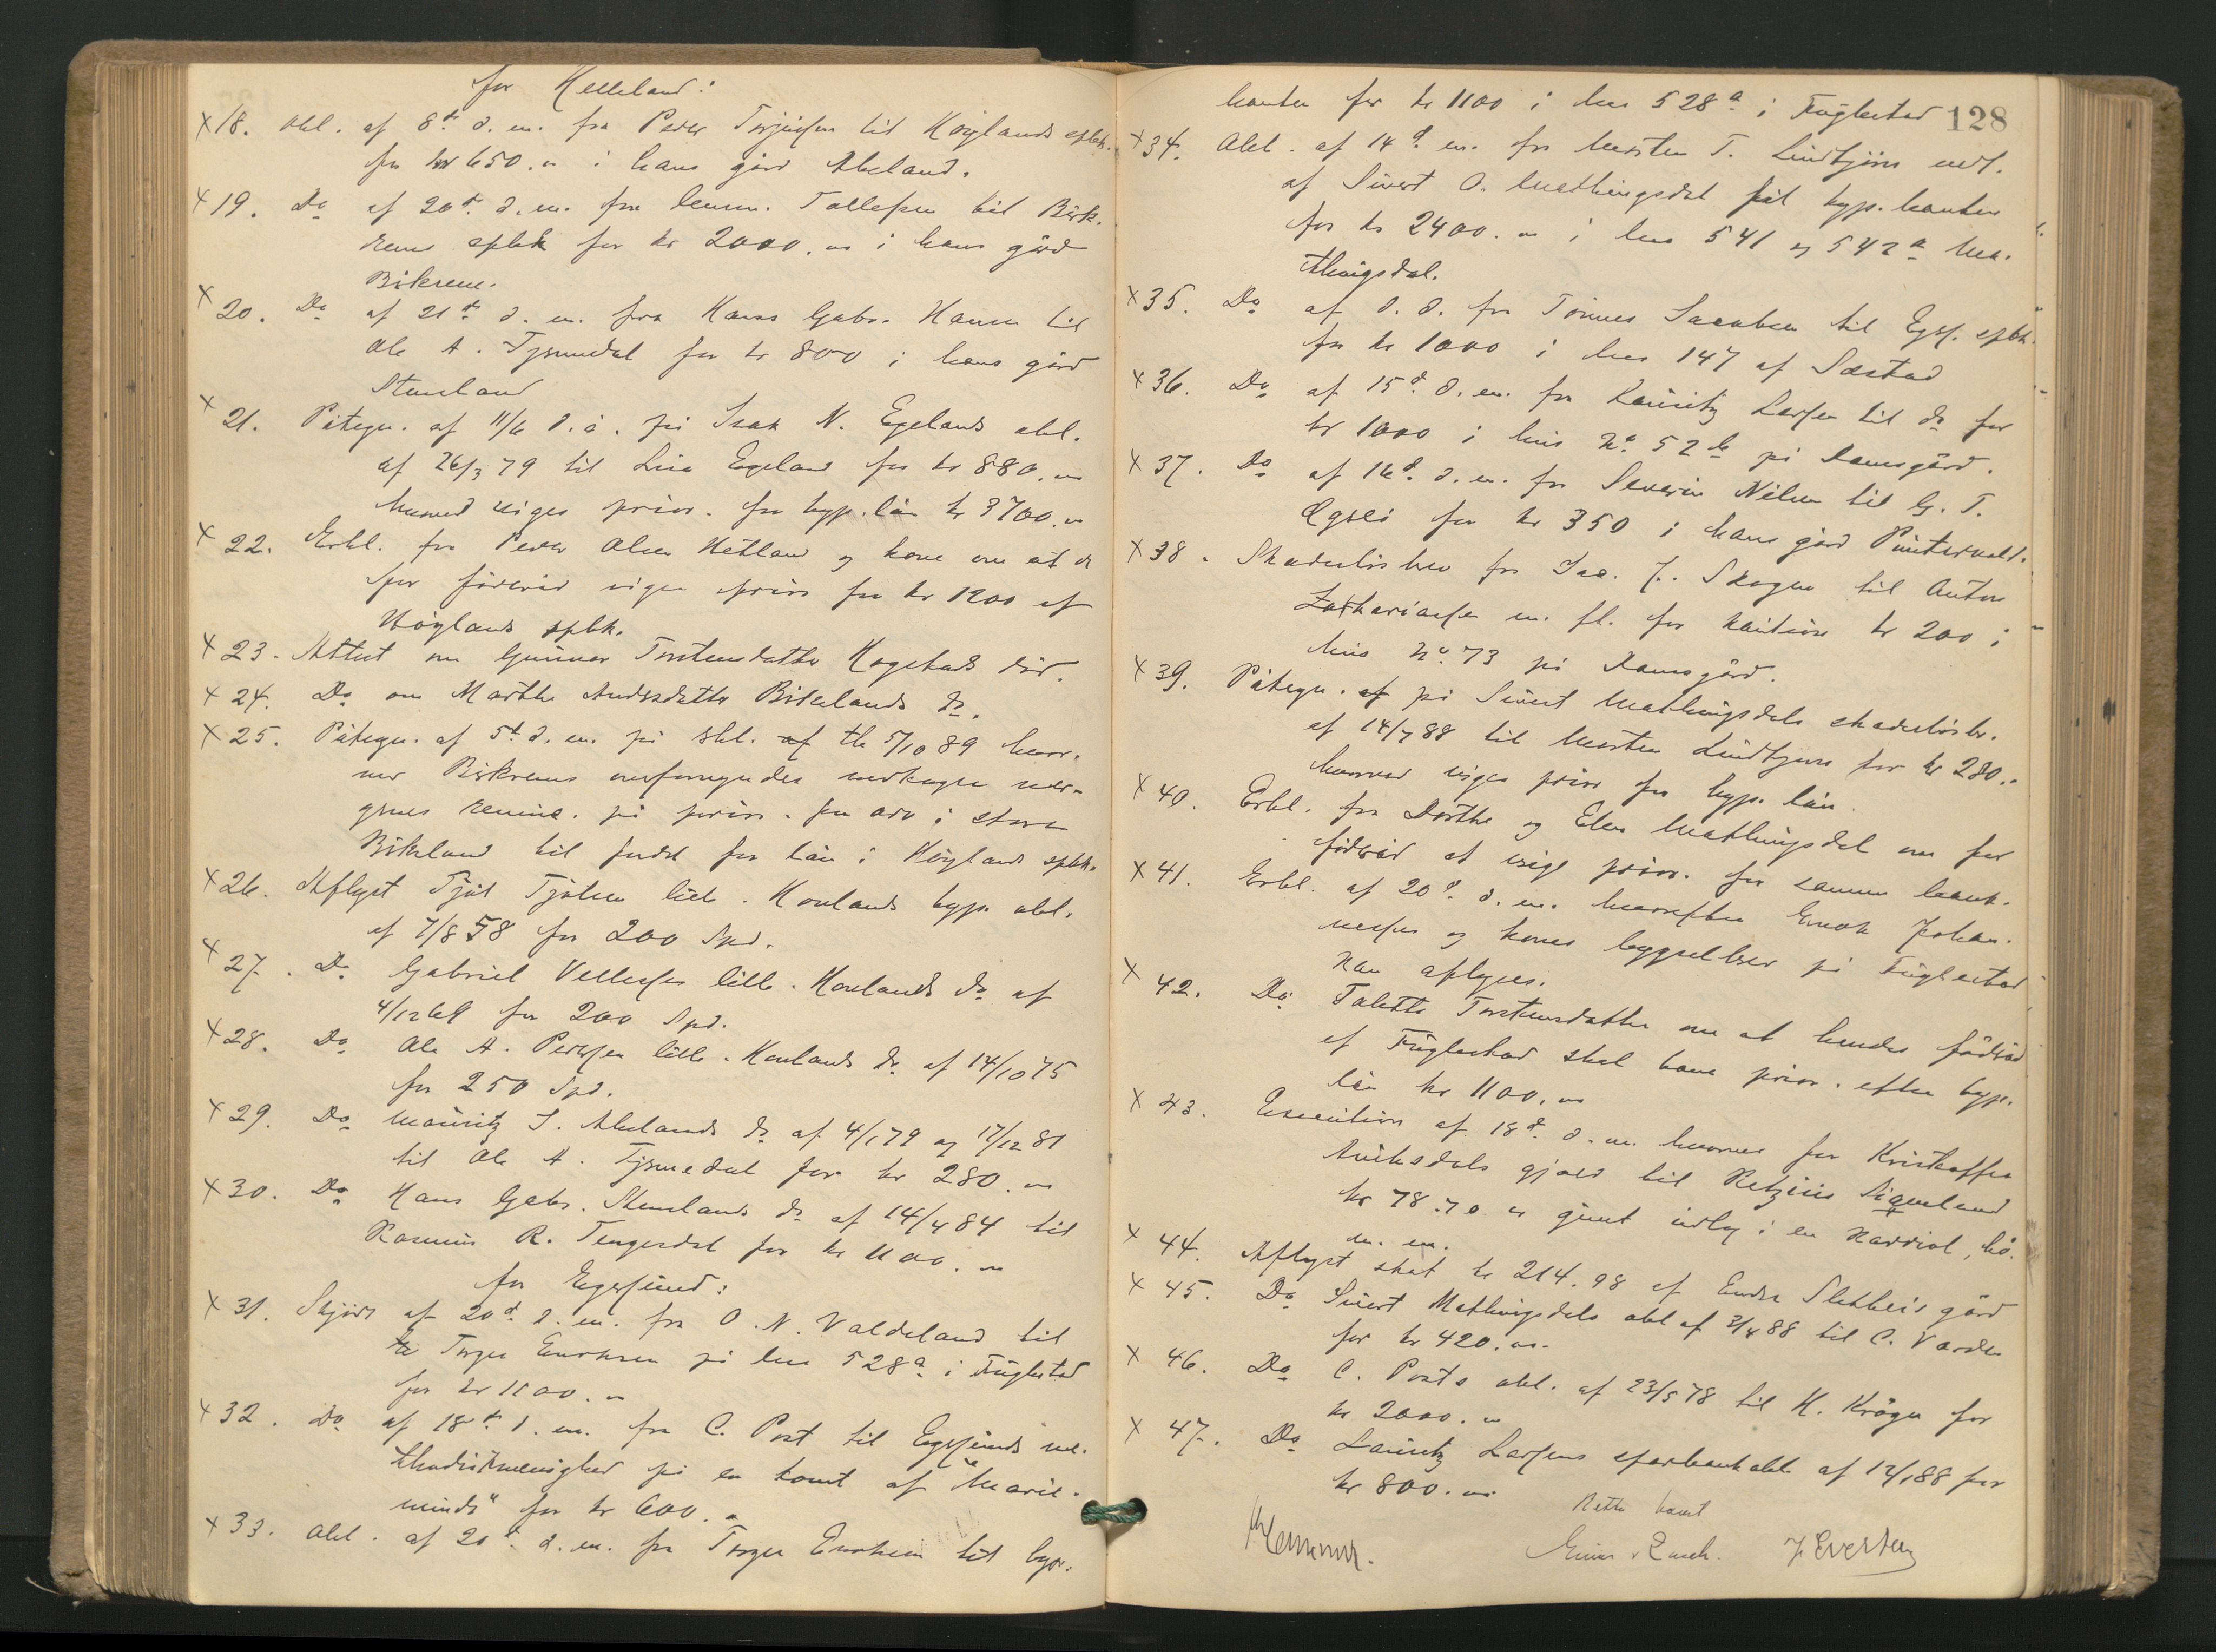 for Helleland:
x 18. Obl. af 8de d. m. fra Peder Torjussen til Höglands spbk.
for kr 650.00 i hans gård Åkeland.
x 19. Do af 20de d. m. fra lensm. Tollefsen til Birk-
rems spbk for kr 2000.00 i hans gård
Birkrem.
x 20. Do af 21de d. m. fra Hans Gabr. Hansen til
Ole A. Tysmedal for kr 800 i hans gård
Stemland
x 21. Påtegn. af 11/6 d. å. på Isak N. Egelands obl.
af 26/3 79 til Lisa Egeland for kr 880.00
hvorved viges prior. for hyp. lån kr 3700.00
x 22. Erkl. fra Peder Olsen Hetland og kone om at de
for föderåd viger prior for kr 1200 af
Höglands spbk.
x 23. Attest om Gunvor Torstensdatter Hogstads död.
x 24. Do om Marthe Andersdatter Birkelands do.
x 25. Påtegn. af 5te d. m. på skl. af th 5/10 89 hvor-
ved Birkrems overformynderi vedtager vær-
gernes renunc. på prior. for arv i store
Birkeland til fordel for lån i Höglands spbk.
x 26. Aflyst Tjöl Tjölsen lille. Hovlands hyp. obl.
af 7/8 58 for 200 Spd.
x 27. Do Gabriel Vellesens lille. Hovlands do af
4/12 69 for 200 Spd.
x 28. Do Ole A. Pedersen lille. Hovlands do af 14/10 75
for 250 Spd.
x 29. Do Mauritz I. Åkelands do af 4/1 79 og 17/12 81
til Ole A. Tysmedal for kr 280.00
x 30. Do Hans Gabr. Stemlands do af 14/4 84 til
Rasmus R. Tengesdal for kr 1100.00
for Egersund:
x 31. Skjöde af 20de d. m. fra O. N. Valdeland til
Torger Enoksen på lno 528a i Fuglestad
for kr 1100.00
x 32. Do af 18de d. m. fra C. Post til Egersunds me-
thodistmenighed på en tomt af "Marie-
minde" for kr 600.00
x 33. Obl. af 20de d. m. fra Torger Enoksen til hyp.
128
banken for kr 1100 i lno 528a i Fuglestad
x 34. Obl. af 14de d. m. fra Morten T. Lindtjörn
af Sivert O. Mathingsdal til hyp. banken
for kr 2400.00 i lno 541 og 542a Ma-
thingsdal.
x 35. Do af d. d. fra Tönnes Jacobsen til Egs. spbk.
for kr 1000 i lno 147 af Sæstad
x 36. Do af 15de d. m. fra Lauritz Larsen til do for
kr 1000 i hus No 52b på Damsgård.
x 37. Do af 16de d. m. fra Severin Nilsen til G. T.
for kr 350 i hans gård Puntervold.
x 38. Skadeslösbrev fra Jac. J. Skogen til Anton
Zakkariasen m. fl. for kaution kr 200 i
hus No 73 på Damsgård.
x 39. Påtegn. af på Sivert Mathingsdals skadeslösbr.
af 14/7 88 til Morten Lindtjörn for kr 280.00
hvorved viges prior for hyp. lån.
x 40. Erkl. fra Dorthe og Elen Mathingsdal om for
föderåd at vige prior. for samme bank.
x 41. Erkl. af 20de d. m. hvorefter Enok Johan-
nessens og kones bygselbrev på Fuglestad
kan aflyses.
x 42. Do Talette Torstensdatter om at hendes föderåd
af Fuglestad skal have prior. efter hyp.
lån kr 1100.00
x 43. Execution af 18de d. m. hvorved for Kristoffer
Aviksdals gjæld til Retzius Sigmland
kr 78.70 er gjort udlæg i en Karriol, hö.
m. m.
x 44. Aflyst skat kr 214.98 af Endre Sletteis gård
x 45. Do Sivert Mathingsdals obl af 3/4 88 til C. Varden
for kr 420.00.
x 46. Do C. Posts obl. af 23/5 78 til H. Kröger for
kr 2000.00
x 47. Do Lauritz Larsens sparbankobl. af 12/1 88 for
kr 800.00
Retten hævet
J. Evertsen